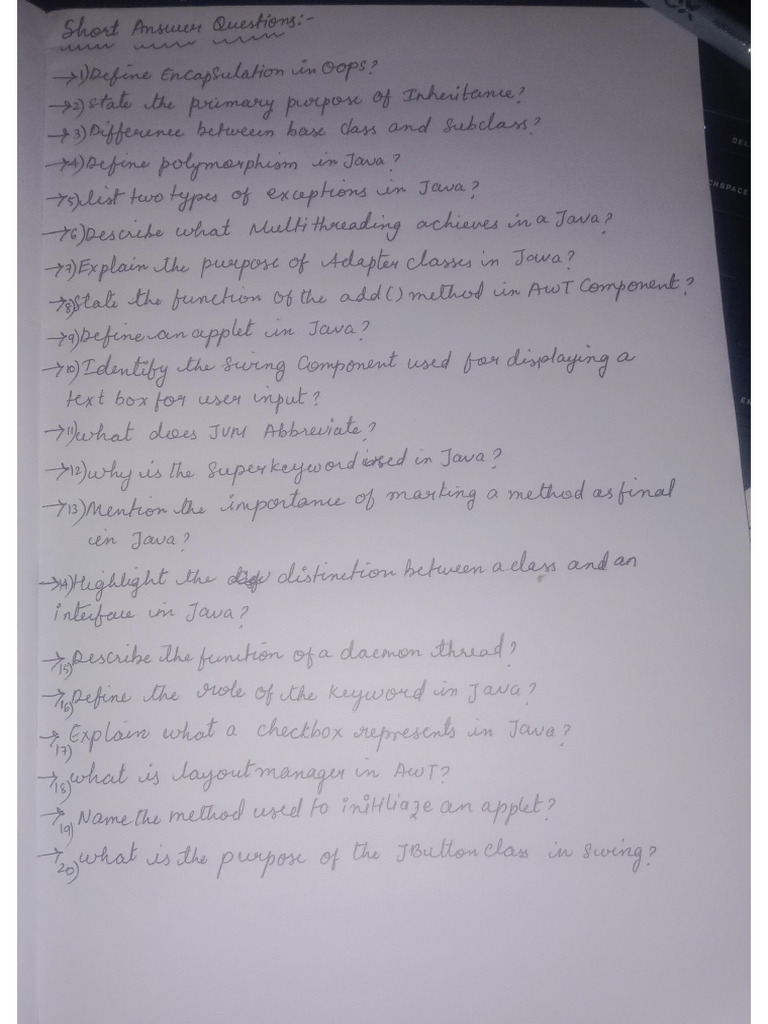 Short Answer Questions:-
→1)Define Encapsulation in Oops?
→2)State the primary purpose of Inheritance?
→3)Difference between base class and subclass?
→4)Define polymorphism in Java?
→5)List two types of exceptions in Java?
→6)Describe what Multithreading achieves in a Java?
→7)Explain the purpose of Adapter classes in Java?
→8)State the function of the add() method in AWT Component?
→9)Define an applet in Java?
→10)Identify the Swing Component used for displaying a
text box for user input?
→11)what does JVM Abbreviate?
→12)why is the Super keyword used in Java?
→13)Mention the importance of marking a method as final
in Java?
→14)Highlight the distinction between a class and an
interface in Java?
→15)Describe the function of a daemon thread?
→16)Define the role of the keyword in Java?
→17)Explain what a checkbox represents in Java?
→18)what is layout manager in AWT?
→19)Name the method used to initiliaze an applet?
→20)what is the purpose of the JButton Class in Swing?